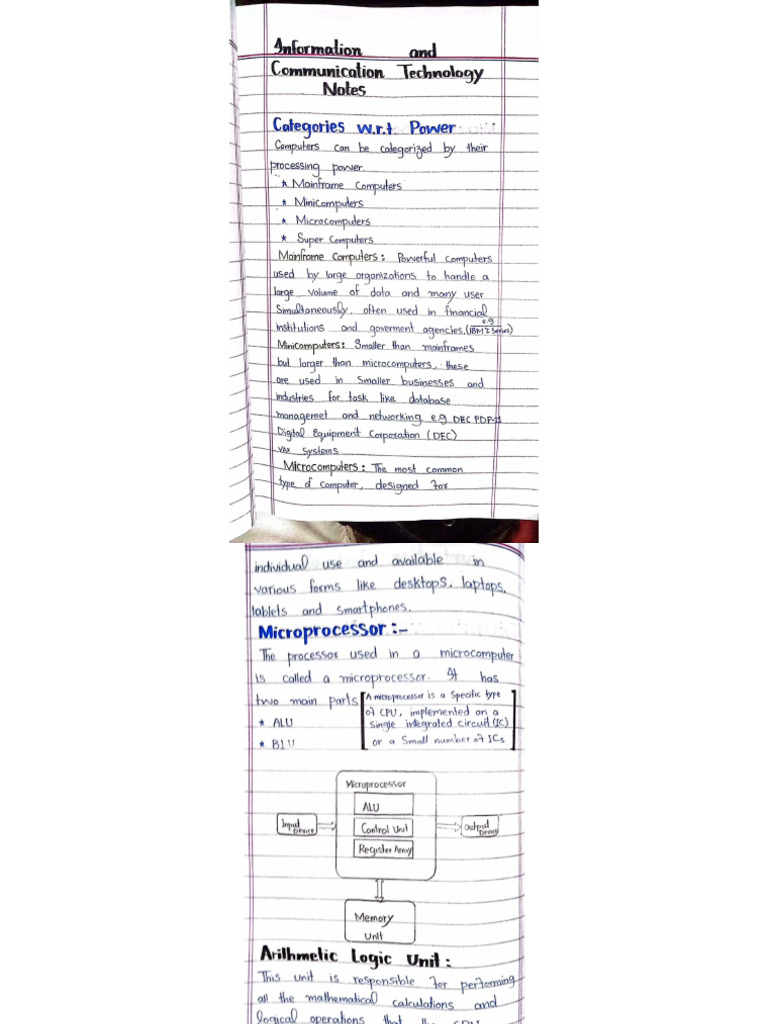 Information and
Communication Technology
Notes
Categories w.r.t Power
Computers can be categorized by their
processing power.
* Mainframe Computers
* Minicomputers
* Microcomputers
* Super Computers
Mainframe Computers: Powerful computers
used by large organizations to handle a
large volume of data and many user
Simultaneously, often used in financial
institutions and goverment agencies. e.g (IBM Z Series)
Minicomputers: Smaller than mainframes
but larger than microcomputers, these
are used in smaller businesses and
industries for task like database
managemet and networking e.g DEC PDP-11
Digital Equipment Corporation (DEC)
VAX Systems
Microcomputers: The most common
type of computer, designed for
individual use and available in
various forms like desktops, laptops,
tablets and smartphones.
Microprocessor :-
The processor used in a microcomputer
is called a microprocessor. It has
two main parts
* ALU
* BIU
[A microprocessor is a specific type
of CPU, implemented on a
single integrated circuit (IC)
or a small number of ICs]
Microprocessor
ALU
Input
Device
Control Unit
Output
Device
Register Array
Memory
Unit
Arithmetic Logic Unit :
This unit is responsible for performing
all the mathematical calculations and
logical operations that the CPU